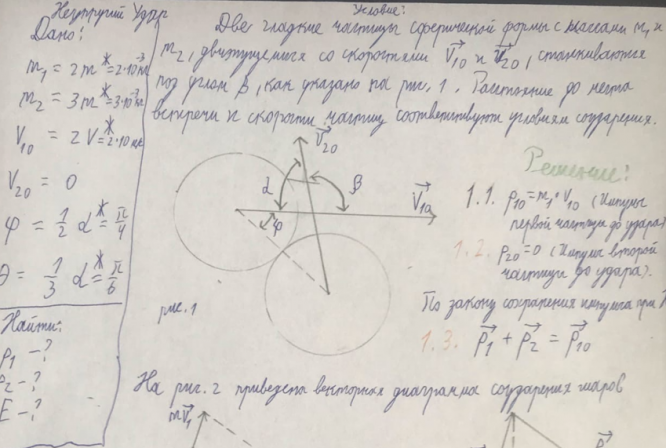 Неупругий Удар
Дано:
m₁ = 2m* = 2·10⁻³
m₂ = 3m* = 3·10⁻³
V₁₀ = 2V* = 2·10
V₂₀ = 0
φ = 1/2 α* = π/4
Θ = 1/3 α* = π/6
Найти:
p₁ - ?
p₂ - ?
E - ?
Условие:
Две гладкие частицы сферической формы с массами m₁ и
m₂, движущиеся со скоростями V₁₀ и V₂₀, сталкиваются
под углом β, как указано на рис. 1. Расстояние до места
встречи и скорости частиц соответствуют условиям соударения.
V₂₀
α
β
V₁₀
φ
рис. 1
Решение:
1.1. p₁₀ = m₁·V₁₀ (Импульс
первой частицы до удара)
1.2. p₂₀ = 0 (Импульс второй
частицы до удара).
По закону сохранения импульса при
1.3. p₁ + p₂ = p₁₀
На рис. 2 приведена векторная диаграмма соударения шаров
mV₁